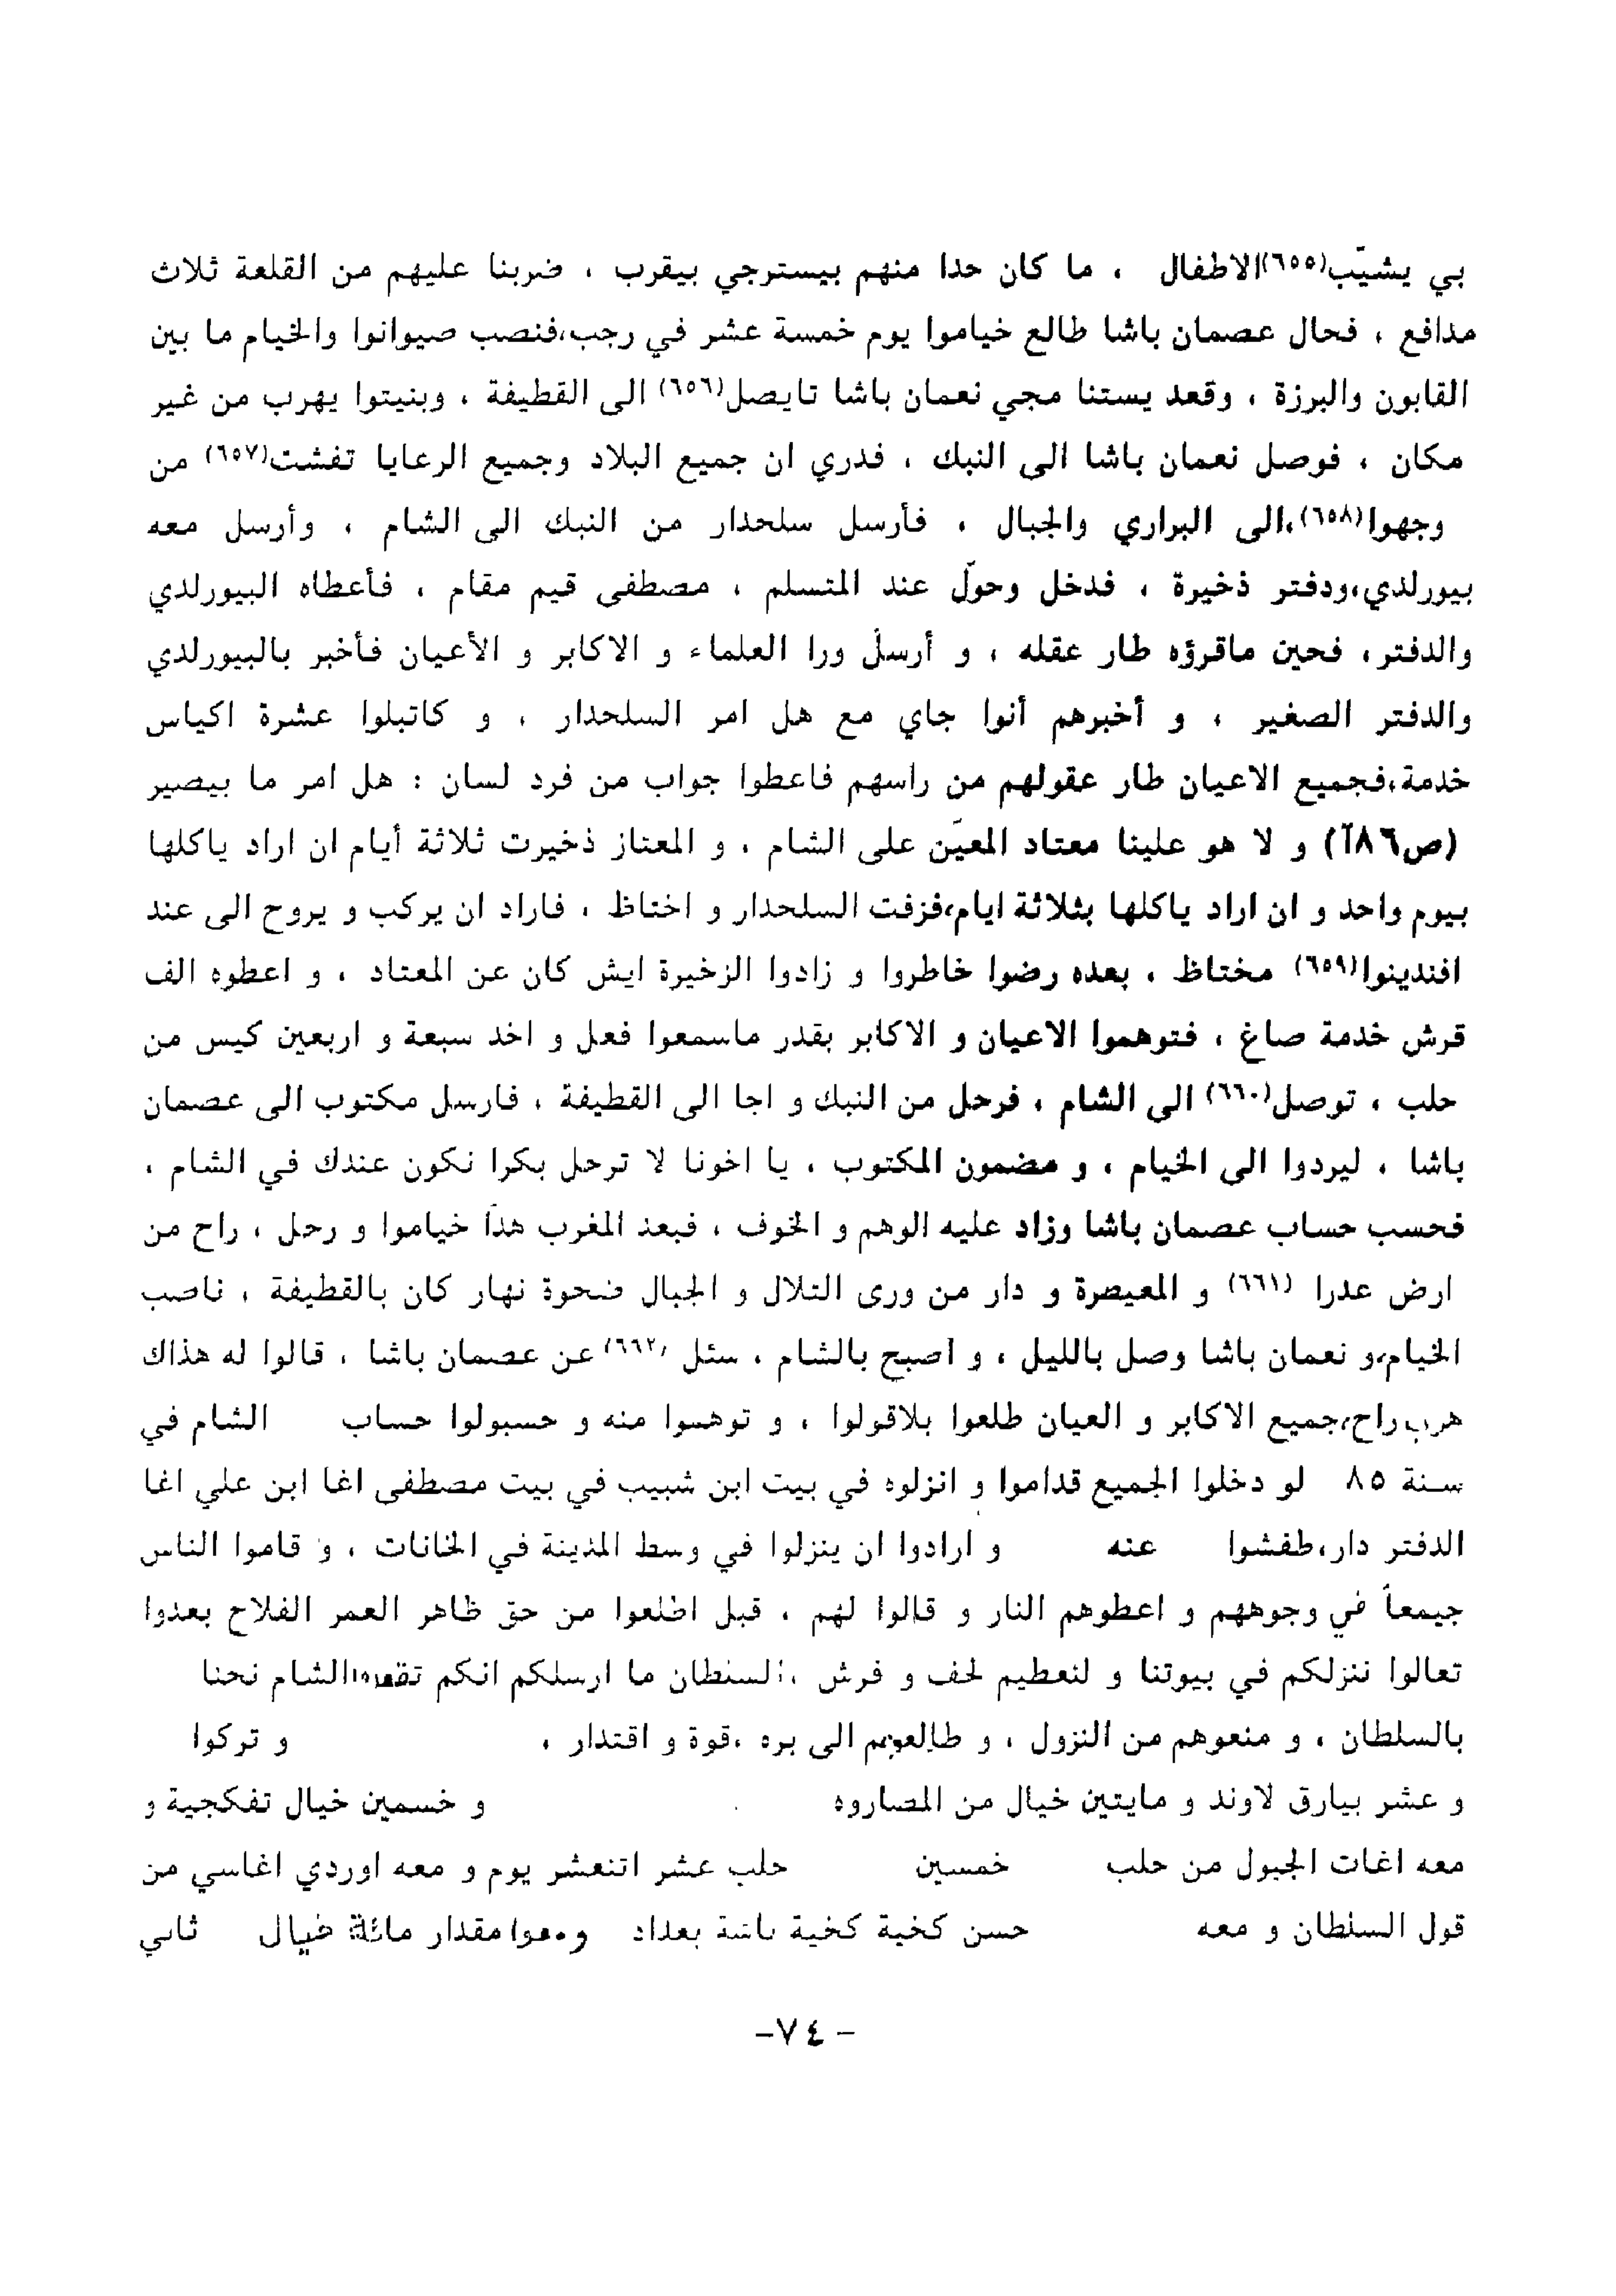 بي يشيّب(٦٥٥)الاطفال ، ما كان حدا منهم بيسترجي بيقرب ، ضربنا عليهم من القلعة ثلاث
مدافع ، فحال عصمان باشا طالع خياموا يوم خمسة عشر في رجب،فنصب صيوانوا والخيام ما بين
القابون والبرزة ، وقعد يستنا مجي نعمان باشا تايصل(٦٥٦) الى القطيفة ، وبنيتوا يهرب من غير
مكان ، فوصل نعمان باشا الى النبك ، فدري ان جميع البلاد وجميع الرعايا تفشت(٦٥٧) من
وجهوا(٦٥٨)،الى البراري والجبال ، فأرسل سلحدار من النبك الى الشام ، وأرسل معه
بيورلدي،ودفتر ذخيرة ، فدخل وحوّل عند المتسلم ، مصطفى قيم مقام ، فأعطاه البيورلدي
والدفتر، فحين ماقرؤه طار عقله ، و أرسل ورا العلماء و الاكابر و الأعيان فأخبر بالبيورلدي
والدفتر الصغير ، و أخبرهم أنوا جاي مع هل امر السلحدار ، و كاتبلوا عشرة اكياس
خدمة،فجميع الاعيان طار عقولهم من راسهم فاعطوا جواب من فرد لسان : هل امر ما بيصير
(ص٨٦آ) و لا هو علينا معتاد المعيّن على الشام ، و المعتاز ذخيرت ثلاثة أيام ان اراد ياكلها
بيوم واحد و ان اراد ياكلها بثلاثة ايام،فزفت السلحدار و اختاظ ، فاراد ان يركب و يروح الى عند
افندينوا(٦٥٩) مختاظ ، بعده رضوا خاطروا و زادوا الزخيرة ايش كان عن المعتاد ، و اعطوه الف
قرش خدمة صاغ ، فتوهموا الاعيان و الاكابر بقدر ماسمعوا فعل و اخد سبعة و اربعين كيس من
حلب ، توصل(٦٦٠) الى الشام ، فرحل من النبك و اجا الى القطيفة ، فارسل مكتوب الى عصمان
باشا ، ليردوا الى الخيام ، و مضمون المكتوب ، يا اخونا لا ترحل بكرا نكون عندك في الشام ،
فحسب حساب عصمان باشا وزاد عليه الوهم و الخوف ، فبعد المغرب هدّا خياموا و رحل ، راح من
ارض عدرا (٦٦١) و المعيصرة و دار من ورى التلال و الجبال ضحوة نهار كان بالقطيفة ، ناصب
الخيام،و نعمان باشا وصل بالليل ، و اصبح بالشام ، سئل (٦٦٢) عن عصمان باشا ، قالوا له هذاك
هرب راح،جميع الاكابر و العيان طلعوا بلاقولوا ، و توهموا منه و حسبولوا حساب الشام في
سنة ٨٥ لو دخلوا الجميع قداموا و انزلوه في بيت ابن شبيب في بيت مصطفى اغا ابن علي اغا
الدفتر دار،طفشوا عنه و ارادوا ان ينزلوا في وسط المدينة في الخانات ، و قاموا الناس
جيمعاً في وجوههم و اعطوهم النار و قالوا لهم ، قبل اطلعوا من حق ظاهر العمر الفلاح بعدوا
تعالوا ننزلكم في بيوتنا و لنعطيم لحف و فرش ، السلطان ما ارسلكم انكم الشام نحنا
بالسلطان ، و منعوهم من النزول ، و طالعوهم الى بره ،قوة و اقتدار ، و تركوا
و عشر بيارق لاوند و مايتين خيال من المصاروه و خسمين خيال تفكجية و
معه اغات الجبول من حلب خمسين حلب عشر اتنعشر يوم و معه اوردي اغاسي من
قول السلطان و معه حسن كخية كخية باشة بغداد ومعوا مقدار مائة خيال ثاني
- ٧٤-